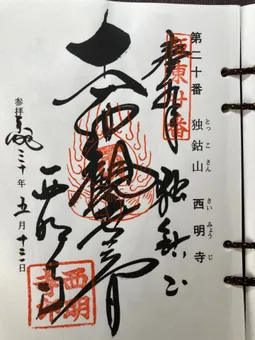 第二十番　独鈷山　西明寺
とっこさん　さいみょうじ
坂東廿番
奉拝　独鈷山
十一面観世音
西明寺
参拝　平成三十年　五月十三日